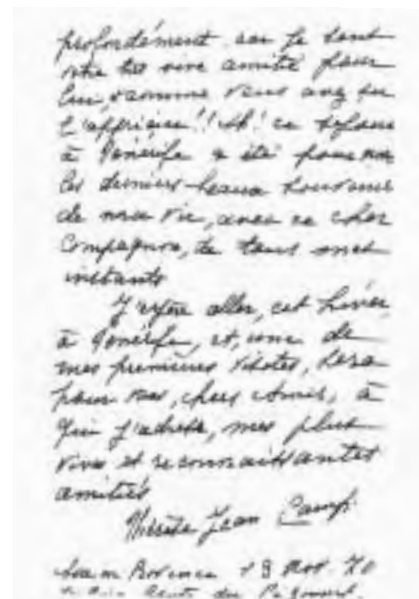 profondément car je sens
votre très vive amitié pour
lui, comme vous avez su
l'apprécier!! Ah! ce séjour
à Ténérife a été pour moi
les derniers beaux souvenirs
de ma vie, avec ce cher
Compagnon, de tous mes
instants
J'espère aller, cet hiver,
à Ténérife, et, une de
mes premières visites, sera
pour vous, chers Amis, à
qui j'adresse, mes plus
vives et reconnaissantes
amitiés
Jean Camp
Provence 18 Nov. 70